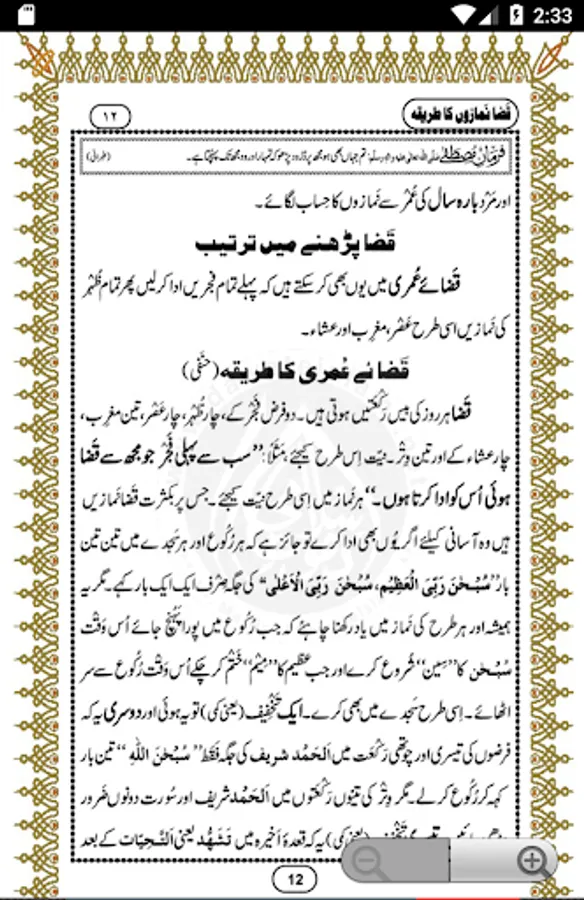 2:33
قَضا نَمازوں کا طریقہ
۱۲
فرمانِ مُصطَفٰے صلَّی اللہ تعالٰی علیہ واٰلہٖ وسلَّم: تم جہاں بھی ہو مجھ پر دُرُود پڑھو کہ تمہارا دُرُود مجھ تک پہنچتا ہے۔ (طبرانی)
اور مَرْد بارہ سال کی عُمْر سے نَمازوں کا حساب لگائے۔
قَضا پڑھنے میں ترتیب
قَضائے عُمری میں یوں بھی کر سکتے ہیں کہ پہلے تمام فجریں ادا کر لیں پھر تمام ظُہْر
کی نَمازیں اسی طرح عَصْر، مغرِب اور عشاء۔
قَضائے عُمری کا طریقہ (حنفی)
قَضا ہر روز کی بیس رَکْعَتیں ہوتی ہیں۔ دو فرض فَجْر کے، چار ظُہْر، چار عَصْر، تین مغرِب،
چار عشاء کے اور تین وِتْر۔ نیّت اِس طرح کیجئے، مَثَلًا: ”سب سے پہلی فَجْر جو مجھ سے قَضا
ہوئی اُس کو ادا کرتا ہوں۔“ ہر نَماز میں اِسی طرح نیّت کیجئے۔ جس پر بکثرت قَضا نَمازیں
ہیں وہ آسانی کیلئے اگر یُوں بھی ادا کرے تو جائز ہے کہ ہر رُکوع اور ہر سَجدے میں تین تین
بار ”سُبْحٰنَ رَبِّیَ الْعَظِیْم، سُبْحٰنَ رَبِّیَ الْاَعْلٰی“ کی جگہ صِرف ایک ایک بار کہے۔ مگر یہ
ہمیشہ اور ہر طرح کی نَماز میں یاد رکھنا چاہئے کہ جب رُکوع میں پورا پہنچ جائے اُس وَقْت
سُبْحٰن کا ”سِین“ شُروع کرے اور جب عظیم کا ”مِیْم“ خَتْم کر چکے اُس وَقْت رُکوع سے سر
اٹھائے۔ اِسی طرح سَجدے میں بھی کرے۔ ایک تَخْفِیف (یعنی کمی) تو یہ ہوئی اور دوسری یہ کہ
فرضوں کی تیسری اور چوتھی رَکْعت میں اَلْحَمْد شریف کی جگہ فَقَط ”سُبْحٰنَ اللّٰہِ“ تین بار
کہہ کر رُکوع کر لے۔ مگر وِتْر کی تینوں رَکْعَتوں میں اَلْحَمْد شریف اور سُورت دونوں ضَرور
تیسری تَخْفِیف (یعنی کمی) یہ کہ قعدۂ اَخیرہ میں تَشَہُّد یعنی اَلتَّحِیَّات کے بعد
12